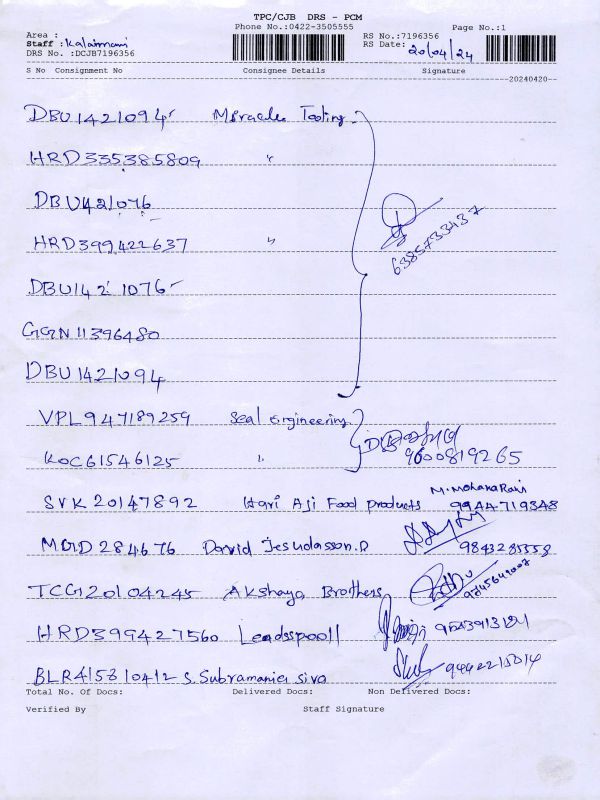 TPC/CJB DRS - PCM
Phone No.:0422-3505555 Page No.:1
Area :
Staff : Kalaimani
DRS No. :DCJB7196356
RS No.:7196356
RS Date: 20/04/24
S No Consignment No Consignee Details Signature
20240420
DBU1421094 Miracles Tooling
HRD335385809 "
DBU421076
HRD399422637 "
6385733437
DBU1421076
GGN11396480
DBU1421094
VPL947189259 Seal engineering
KOC61546125 " 9600819265
M. Mohana Rani
SVK20147892 Hari Aji Food products 9944719348
MGD284676 David Jesudasson.D 9843285558
TCG20104245 Akshaya Brothers 9245649007
HRD399427560 Leadsspooll
BLR415310412 S. Subramania siva
Total No. Of Docs: Delivered Docs: Non Delivered Docs:
Verified By Staff Signature